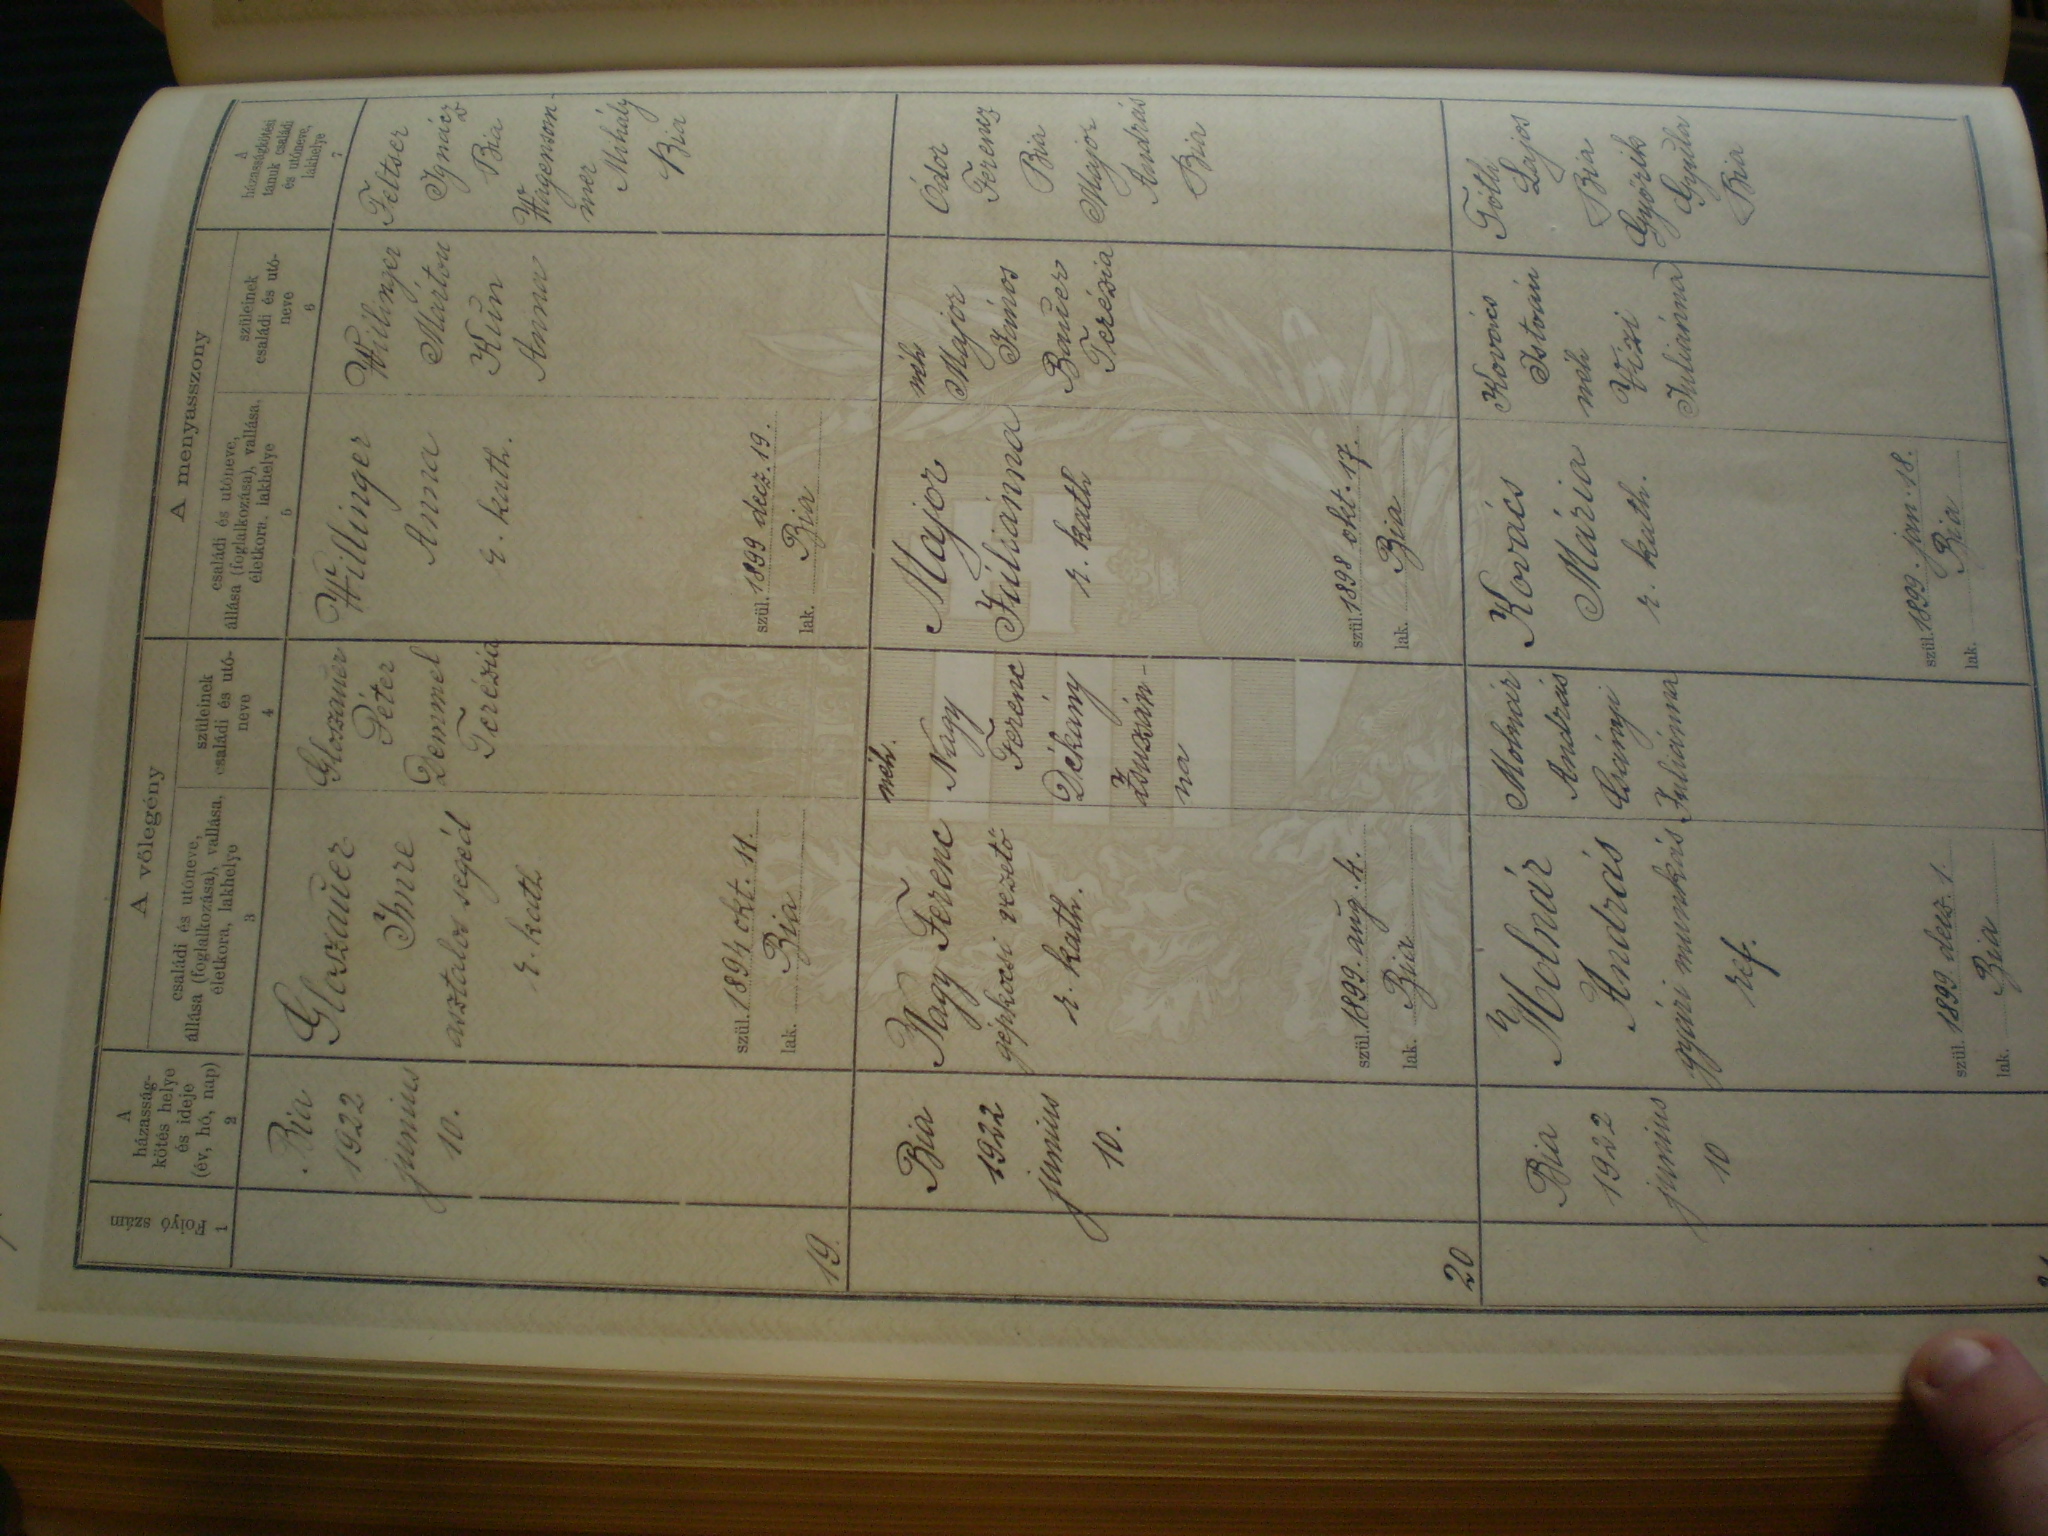 A
házasságkötési
tanuk családi
és utóneve,
lakhelye
7
A menyasszony
szüleinek
családi és utó-
neve
6
családi és utóneve,
állása (foglalkozása), vallása,
életkora, lakhelye
5
A vőlegény
szüleinek
családi és utó-
neve
4
családi és utóneve,
állása (foglalkozása), vallása,
életkora, lakhelye
3
A
házasság-
kötés helye
és ideje
(év, hó, nap)
2
Folyó
szám
1
19.
Bia
1922
junius
10.
Gloszauer
Imre
asztalos segéd
r. kath.
szül. 1894 okt. 11.
lak. Bia
Gloszauer
Péter
Demmel
Terézia
Willinger
Anna
r. kath.
szül. 1899 decz. 19.
lak. Bia
Willinger
Márton
Kun
Anna
Feltser
Ignácz
Bia
Wagensom-
mer
Mihály
Bia
20
Bia
1922
junius
10.
Nagy Ferenc
gépkocsi vezető
r. kath.
szül. 1899. aug. 4.
lak. Bia
néh.
Nagy
Ferenc
Dékány
Zsuzsán-
na
Major
Juliánna
r. kath
szül. 1898 okt. 17.
lak. Bia
néh
Major
János
Bauer
Terézia
Ódor
Ferencz
Bia
Major
András
Bia
Bia
1922
junius
10
Molnár
András
gyári munkás
ref.
szül. 1899 decz. 1.
lak. Bia
Molnár
András
Juliánna
Kovács
Mária
r. kath.
szül. 1899. jan. 18.
lak. Bia
Kovács
István
néh
Vizi
Juliánna
Tóth
Lajos
Bia
Győrik
Gyula
Bia